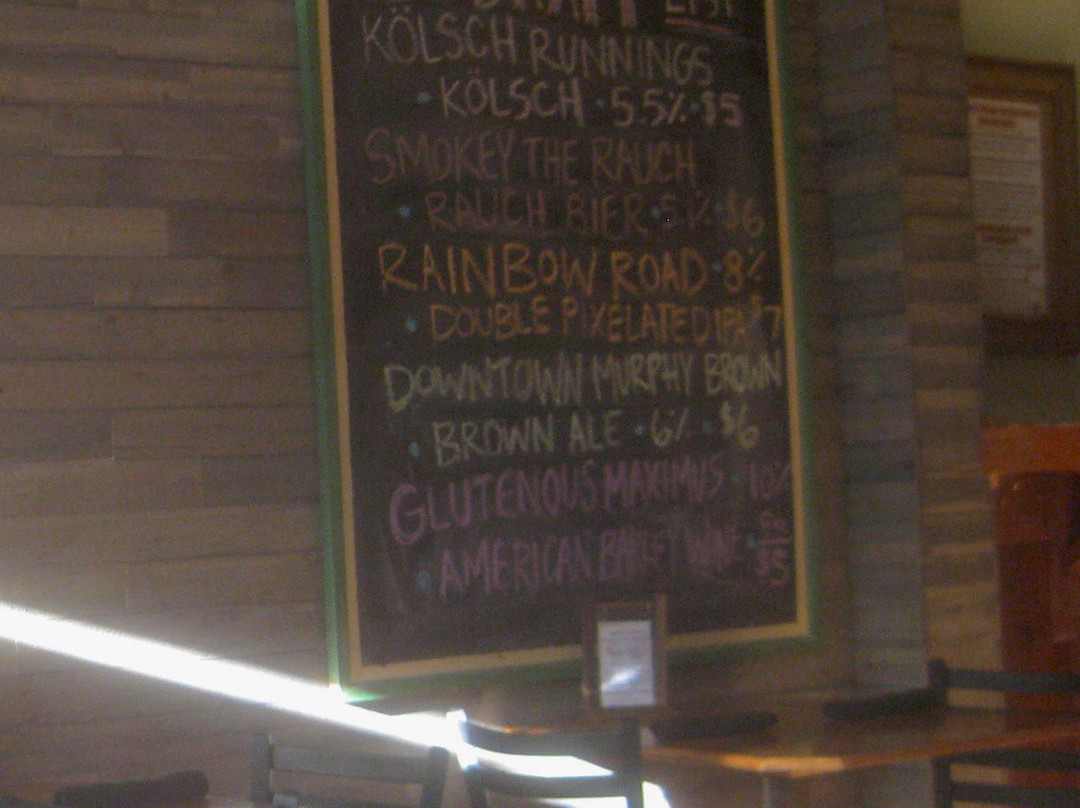 DRAFT LIST
KÖLSCH RUNNINGS
• KÖLSCH • 5.5% • $5
SMOKEY THE RAUCH
• RAUCH BIER • 5% • $6
RAINBOW ROAD • 8%
• DOUBLE PIXELATED IPA • $7
DOWNTOWN MURPHY BROWN
• BROWN ALE • 6% • $6
GLUTENOUS MAXIMUS • 10%
• AMERICAN BARLEY WINE •
$5